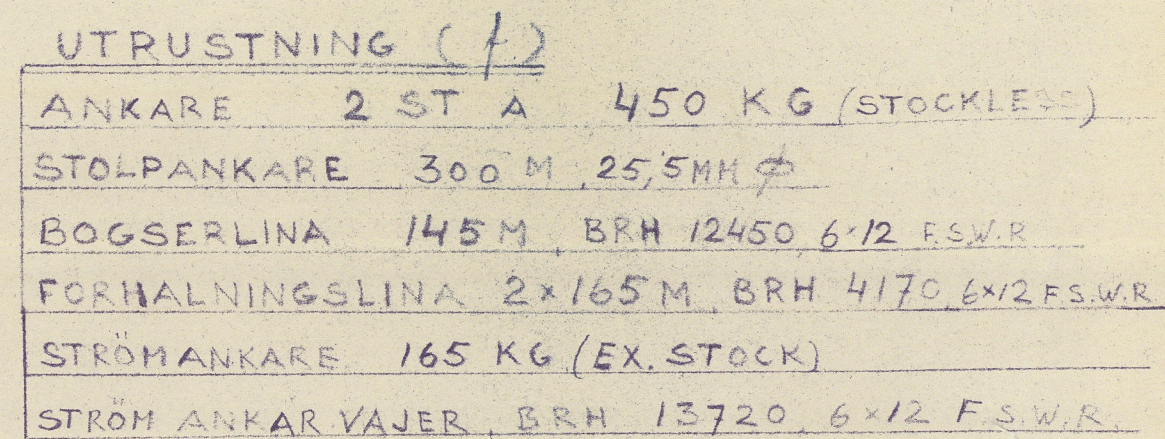 UTRUSTNING (f.)
ANKARE 2 ST A 450 KG (STOCKLESS)
STOLPANKARE 300 M, 25,5MM ϕ
BOGSERLINA 145 M, BRH 12450, 6×12 F.S.W.R
FÖRHALNINGSLINA 2×165 M, BRH 4170, 6×12 F.S.W.R
STRÖMANKARE 165 KG (EX. STOCK)
STRÖM ANKAR VAJER, BRH 13720, 6×12 F.S.W.R.